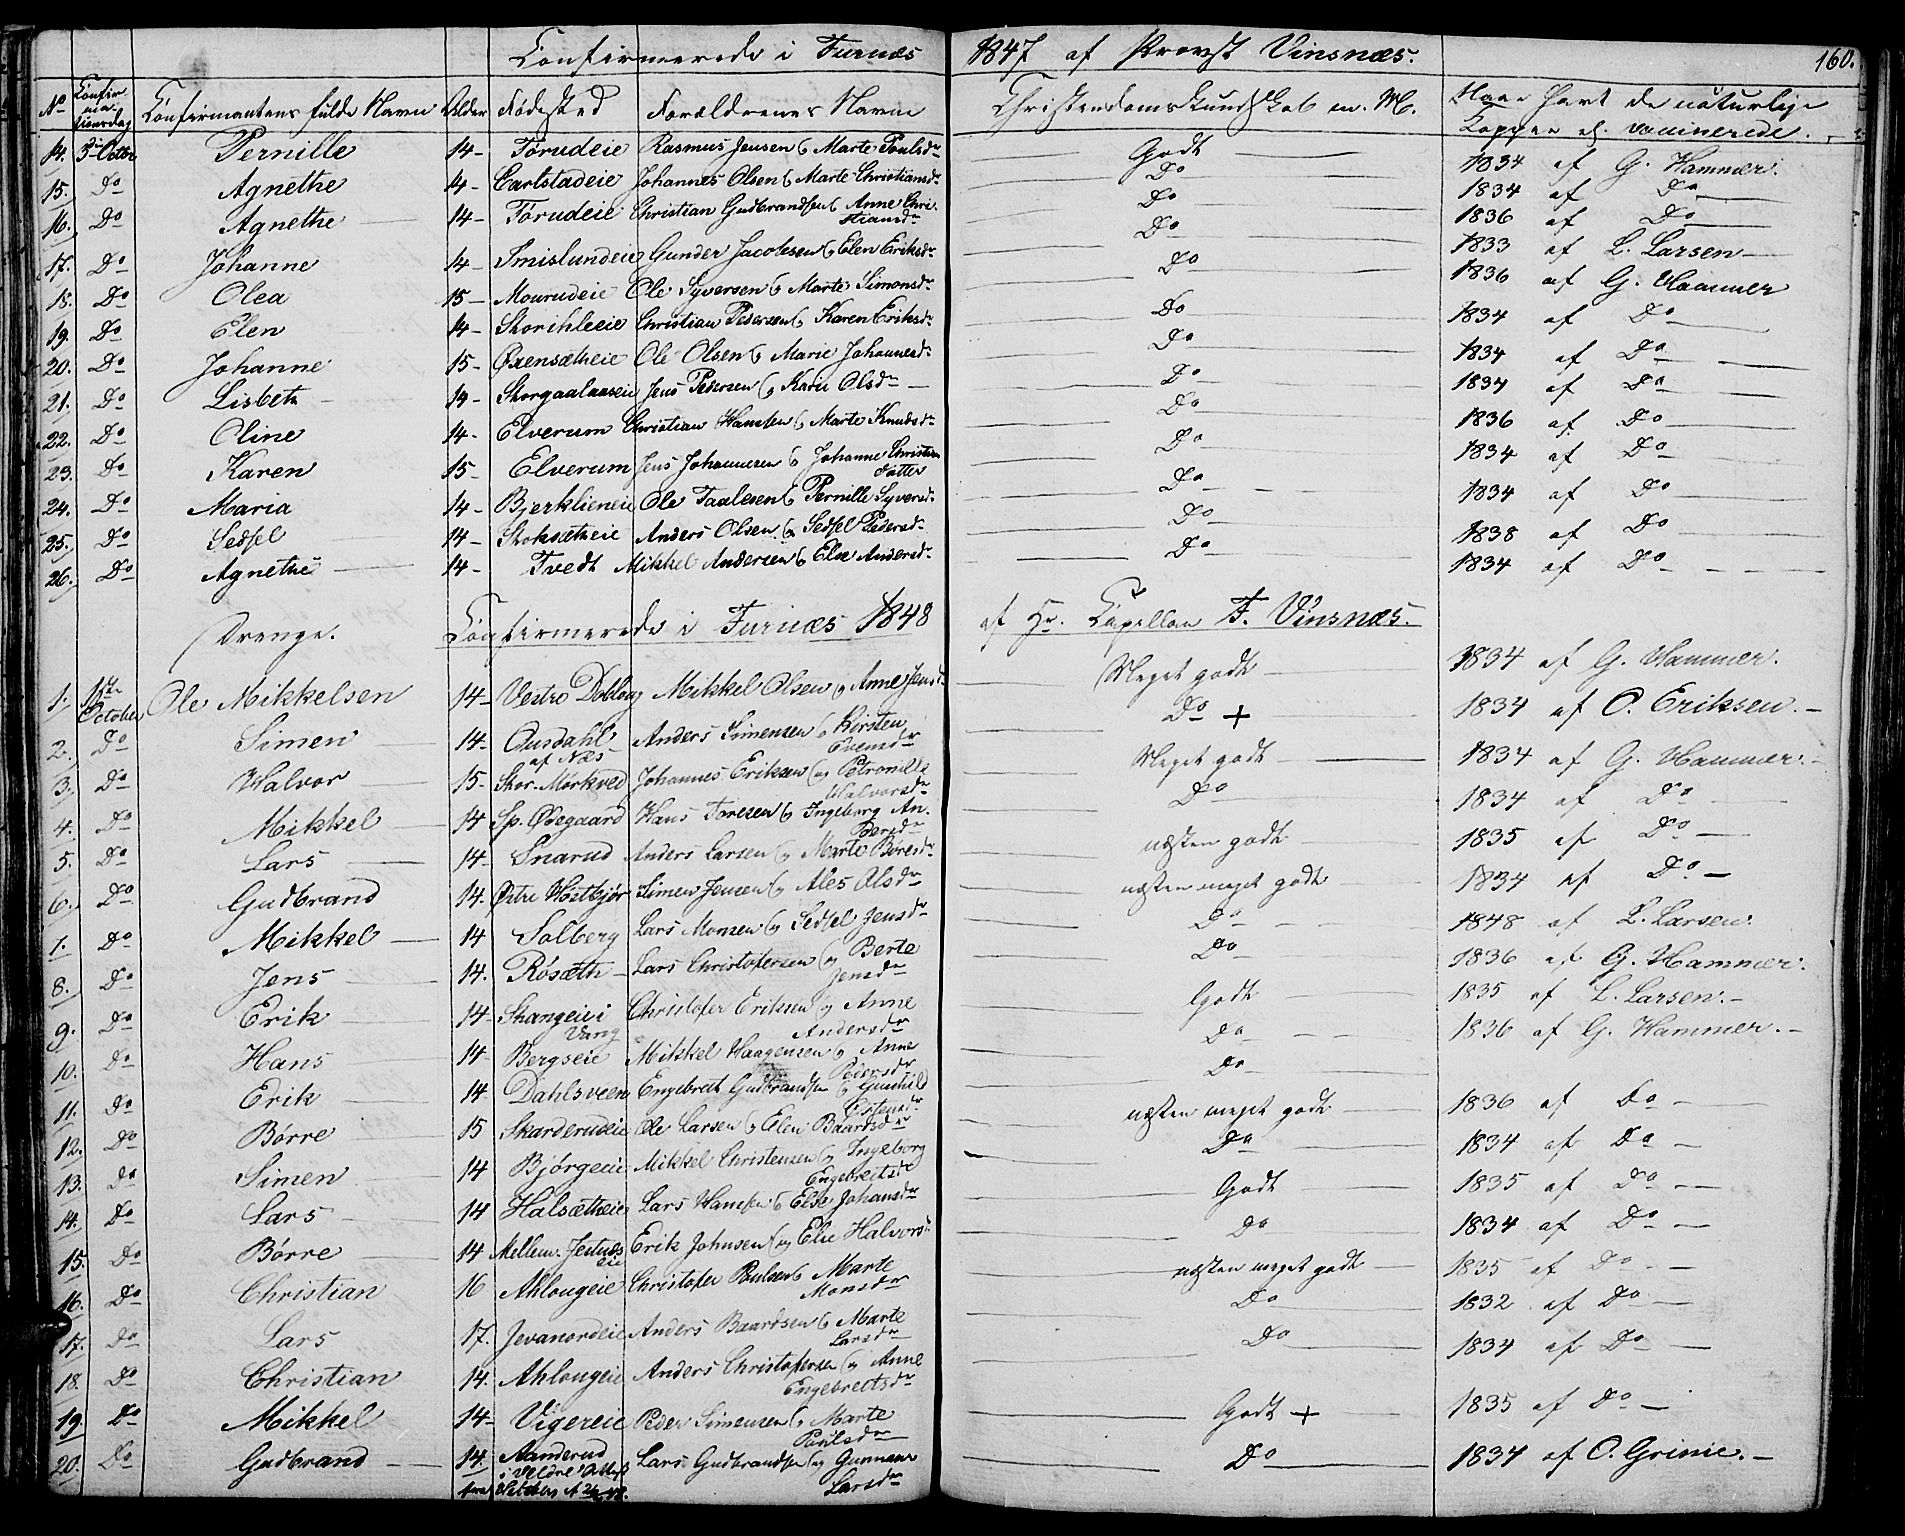 Confirmerede i Furnæs 1847 af Provst Vinsnæs. 160.
No Confirmationsdag Confirmantens fulde Navn Alder Fødested Forældrenes Navne Christendomskundskab m. M. Have havt de naturlige
Kopper el. vaccinerede.
14. 3die Octbr Pernille 14 - Torudeie Rasmus Jensen og Marte Poulsdr Godt 1834 af G. Hammer.
15. Do Agnethe 14 - Carlstadeie Johannes Olsen og Marte Christiansdr Do 1834 af Do
16. Do Agnethe 14 - Torudeie Christian Gudbrandsen og Anne Chri-
stiansdr Do 1836 af Do
17. Do Johanne 14 - Smislundeie Gunder Jacobsen og Elen Eriksdr Do 1833 af L. Larsen
18. Do Olea 15 - Mourudeie Ole Syversen og Marte Simonsdr Do 1836 af G. Hammer
19. Do Elen 14 - Storihleeie Christian Pedersen og Karen Eriksdr Do 1834 af Do
20. Do Johanne 15 - Øxensætheie Ole Olsen og Marie Johannesdr Do 1834 af Do
21. Do Lisbeth 14 - Skorgaalaaseie Jens Pedersen og Kari Olsdr Do 1834 af Do
22. Do Oline 14 - Elverum Christian Hansen og Marte Knudsdr Do 1836 af Do
23. Do Karen 15 - Elverum Jens Johannesen og Johanne Christian
datter Do 1834 af Do
24. Do Maria 14 - Bjerklieneie Ole Taalesen og Pernille Syversdr Do 1834 af Do
25. Do Sedsel 14 - Stoksætheie Anders Olsen og Sedsel Pedersdr Do 1838 af Do
26. Do Agnethe 14 - Tvedt Mikkel Andersen og Else Andersdr Do 1834 af Do
Drenge. Confirmerede i Furnæs 1848 af Hr. Capellan F. Vinsnæs.
1. 1ste October Ole Mikkelsen 14 - Vestre Dobloug Mikkel Olsen og Anne Jensdr Meget godt 1834 af G. Hammer.
2. Do Simen 14 - Ousdahl
af Næs Anders Simensen og Kirsten
Evensdr Do + 1834 af O. Eriksen.
3. Do Halvor 15 - Skor. Mørkved Johannes Eriksen og Petronille
Halvorsdr Meget godt 1834 af G. Hammer.
4. Do Mikkel 14 Sp. Ødegaard Hans Toresen og Ingeborg An-
dersdr Do 1834 af Do
5. Do Lars 14 - Snarud Anders Larsen og Marte Børesdr næsten godt 1835 af Do
6. Do Gudbrand 14. Østre Hostbjør Simen Jensen og Ales Olsdr næsten meget godt 1834 af Do
7. Do Mikkel 14 Solberg Lars Monsen og Sedsel Jensdr Do 1848 af L. Larsen.
8. Do Jens 14. Rosæth Lars Christofersen og Berte
Jensdr Do 1836 af G. Hammer.
9. Do Erik 14 - Skangeie i
Vang Christofer Eriksen og Anne
Andersdr Godt 1835 af L. Larsen.
10. Do Hans 14 - Bergseie Mikkel Haagensen og Anne
Pedersdr Do 1836 af G. Hammer.
11. Do Erik 14 Dahlsveen Engebret Gudbrandsen og Gunhild
Ostensdr Do 1836 af Do
12. Do Børre 15 Skarderudeie Ole Larsen og Elen Baardsdr næsten meget godt 1834 af Do
13. Do Simen 14 Bjørgeeie Mikkel Christensen og Ingeborg
Engebretsdr Do 1835 af Do
14. Do Lars 14 Halsætheie Lars Hansen og Else Johansdr Godt 1834 af Do
15. Do Børre 14 Mellem. Jestnæs
eie Erik Johnsen og Else Halvorsdr Do 1835 af Do
16. Do Christian 16 Ahlougeie Christofer Poulsen og Marte
Monsdr næsten meget godt 1832 af Do
17. Do Lars 17. Jevanordeie Anders Baardsen og Marte
Larsdr Do 1834 af Do
18. Do Christian 14. Ahlougeie Anders Christofersen og Anne
Engebretsdr Do 1835 af Do
19. Do Mikkel 14 - Vigereie Peder Simensen og Marte
Poulsdr Godt +
20. Do Gudbrand 14. Aanderud
i Veldre Attest Lars Gudbrandsen og Gunnor
Larsdr Do 1834 af O. Grime.